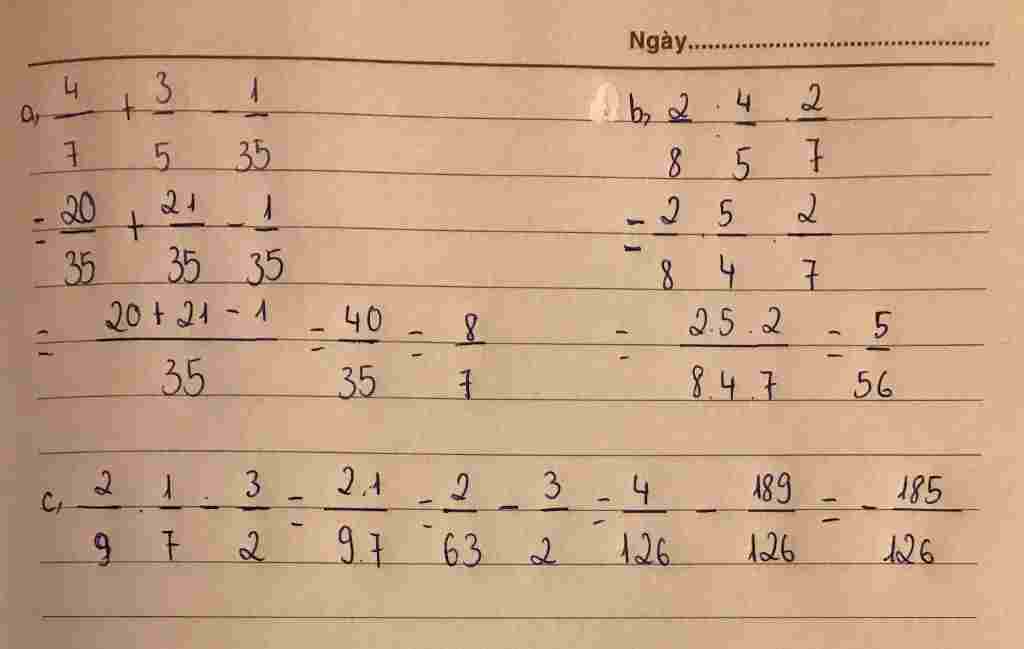 Ngày
a, 4/7 + 3/5 - 1/35
= 20/35 + 21/35 - 1/35
= (20 + 21 - 1)/35 = 40/35 = 8/7
b, 2/8 : 4/5 . 2/7
= 2/8 . 5/4 . 2/7
= (2.5.2)/(8.4.7) = 5/56
c, 2/9 . 1/7 - 3/2 = (2.1)/(9.7) = 2/63 - 3/2 = 4/126 - 189/126 = -185/126